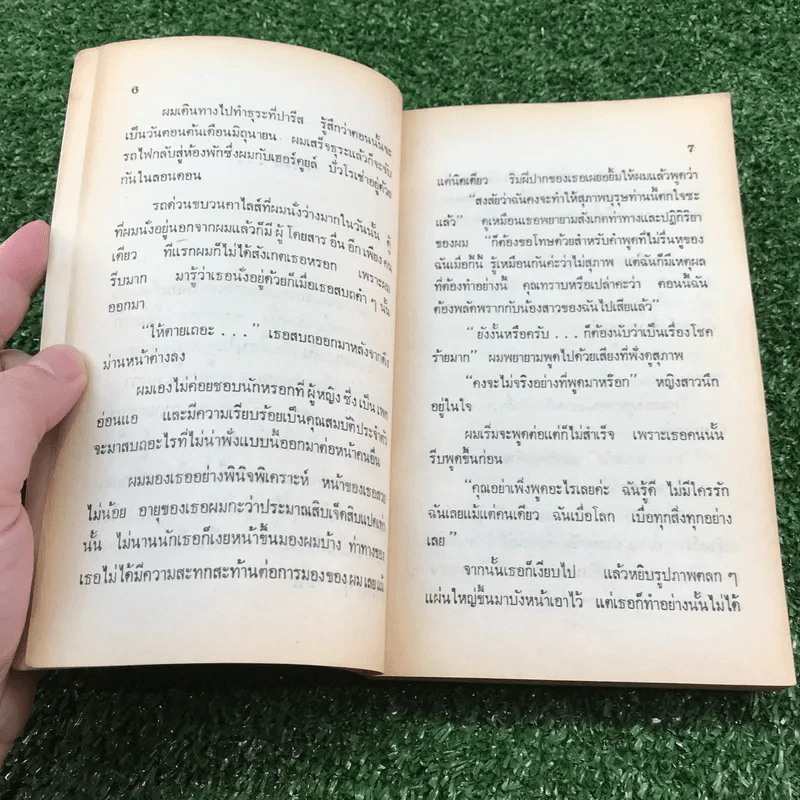 6
ผมเดินทางไปทำธุระที่ปารีส รู้สึกว่าตอนนั้นจะ
เป็นวันตอนต้นเดือนมิถุนายน ผมเสร็จธุระแล้วก็จะจับ
รถไฟกลับสู่ห้องพักซึ่งผมกับเฮอร์คูยล์ บัวโรเช่าอยู่ด้วย
กันในลอนดอน
รถด่วนขบวนคาไลส์ที่ผมนั่งว่างมากในวันนั้น ตู้
ที่ผมนั่งอยู่นอกจากผมแล้วก็มี ผู้ โดยสาร อื่น อีก เพียง
เดียว ที่แรกผมก็ไม่ได้สังเกตเธอหรอก เพราะ
รีบมาก มารู้ว่าเธอนั่งอยู่ด้วยก็เมื่อเธอสบถคำ ๆ นั้น
ออกมา
"ให้ตายเถอะ . . ." เธอสบถออกมาหลังจากดึง
ม่านหน้าต่างลง
ผมเองไม่ค่อยชอบนักหรอกที่ ผู้หญิง ซึ่ง เป็น เพศ
อ่อนแอ และมีความเรียบร้อยเป็นคุณสมบัติประจำตัว
จะมาสบถอะไรที่ไม่น่าฟังแบบนี้ออกมาต่อหน้าคนอื่น
ผมมองเธออย่างพินิจพิเคราะห์ หน้าของเธอสวย
ไม่น้อย อายุของเธอผมกะว่าประมาณสิบเจ็ดสิบแปดเท่า
นั้น ไม่นานนักเธอก็เงยหน้าขึ้นมองผมบ้าง ท่าทางของ
เธอไม่ได้มีความสะทกสะท้านต่อการมองของ ผม เลย แม้
7
แต่นิดเดียว ริมฝีปากของเธอเผยอยิ้มให้ผมแล้วพูดว่า
"สงสัยว่าฉันคงจะทำให้สุภาพบุรุษท่านนี้ตกใจซะ
แล้ว" ดูเหมือนเธอพยายามสังเกตท่าทางและปฏิกิริยา
ของผม "ก็ต้องขอโทษด้วยสำหรับคำพูดที่ไม่รื่นหูของ
ฉันเมื่อกี้นี้ รู้เหมือนกันค่ะว่าไม่สุภาพ แต่ฉันก็มีเหตุผล
ที่ต้องทำอย่างนี้ คุณทราบหรือเปล่าคะว่า ตอนนี้ฉัน
ต้องพลัดพรากกับน้องสาวของฉันไปเสียแล้ว"
"ยังงั้นหรือครับ . . . ก็ต้องนับว่าเป็นเรื่องโชค
ร้ายมาก" ผมพยายามพูดไปด้วยเสียงที่ฟังดูสุภาพ
"คงจะไม่จริงอย่างที่พูดมาหร๊อก" หญิงสาวนึก
อยู่ในใจ
ผมเริ่มจะพูดต่อแต่ก็ไม่สำเร็จ เพราะเธอคนนั้น
รีบพูดขึ้นก่อน
"คุณอย่าเพิ่งพูดอะไรเลยค่ะ ฉันรู้ดี ไม่มีใครรัก
ฉันเลยแม้แต่คนเดียว ฉันเบื่อโลก เบื่อทุกสิ่งทุกอย่าง
เลย"
จากนั้นเธอก็เงียบไป แล้วหยิบรูปภาพตลก ๆ
แผ่นใหญ่ขึ้นมาบังหน้าเอาไว้ แต่เธอก็ทำอย่างนั้นไม่ได้